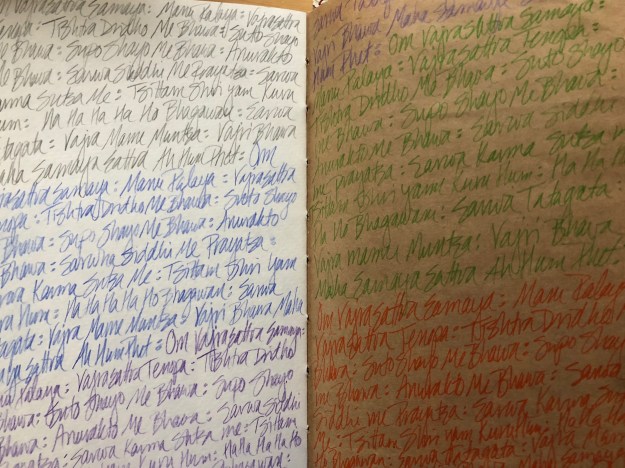 Vajrasattva Samaya: Manu Palaya: Vajrasattva
Tenopa: Tishtira Dridho Me Bhawa: Suto Shayo
Me Bhawa: Supo Shayo Me Bhawa: Anurakto
Me Bhawa: Sarwa Siddhi Me Prayatsa: Sarwa
Karma Sutsa Me: Tsitam Shri Yam Kuru
Hum: Ha Ha Ha Ha Ho Bhagawan: Sarwa
Tatagata: Vajra Mame Muntsa: Vajri Bhawa
Maha Samaya Sattva Ah Hum Phet: Om
Vajrasattva Samaya: Manu Palaya: Vajrasattva
Tenopa: Tishtira Dridho Me Bhawa: Suto Shayo
Me Bhawa: Supo Shayo Me Bhawa: Anurakto
Me Bhawa: Sarwha Siddhi Me Prayatsa:
Sarwa Karma Sutsa Me: Tsittam Shri Yam
Kuru Hum: Ha Ha Ha Ha Ho Bhagawan: Sarwa
Tatagata: Vajra Mame Muntsa: Vajri Bhawa Maha
Samaya Sattva Ah Hum Phet: Om Vajrasattva Samaya:
Manu Palaya: Vajrasattva Tenopa: Tishtira Dridho
Me Bhawa: Suto Shayo Me Bhawa: Supo Shayo
Me Bhawa: Anurakto Me Bhawa: Sarwa Siddhi
Me Prayatsa: Sarwa Karma Sutsa me: Tsitam
Shri Yam Kuru Hum: Ha Ha Ha Ha Ho
Bhagawan:
Vajri Bhawa Maha Samaya
Hum Phet: Om Vajrasattva Samaya:
Manu Palaya: Vajrasattva Tenopa:
Tishtira Dridho Me Bhawa: Suto Shayo
Me Bhawa: Supo Shayo Me Bhawa:
Anurakto Me Bhawa: Sarwa Siddhi
me Prayatsa: Sarwa Karma Sutsa me:
Tsitam Shri Yam Kuru Hum: Ha Ha Ha
Ha Ho Bhagawan: Sarwa Tatagata:
Vajra mame Muntsa: Vajri Bhawa
Maha Samaya Sattva Ah Hum Phet:
Om Vajrasattva Samaya: Manu Palaya
Vajrasattva Tenopa: Tishtira Dridho
Me Bhawa: Suto Shayo Me Bhawa: Supo Shayo
me Bhawa: Anurakto Me Bhawa: Sarwa
Siddhi me Prayatsa: Sarwa Karma Sutsa
Me: Tsitam Shri Yam Kuru Hum: Ha Ha Ha
Ho Bhagawan: Sarwa Tatagata: Vajra Mame